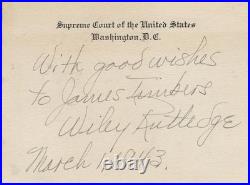 Supreme Court of the United States
Washington, D.C.
With good wishes
to James Timbers
Wiley Rutledge
March 1, 1943.